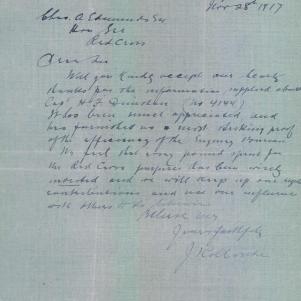 Nov 28th 1917
Chas A Edmunds Esq
Hon Sec
Red Cross
Dear Sir
Will you kindly accept our hearty
thanks for the information supplied about
Cpl H J (No 4144)
It has been much appreciated, and
has furnished us a most striking proof
of the efficiency of the Enquiry Bureau
We feel that every pound spent for
the Red Cross purposes has been wisely
invested and we will keep up our
contributions and use our influence
with others to do likewise
Believe me
Yours faithfully
J